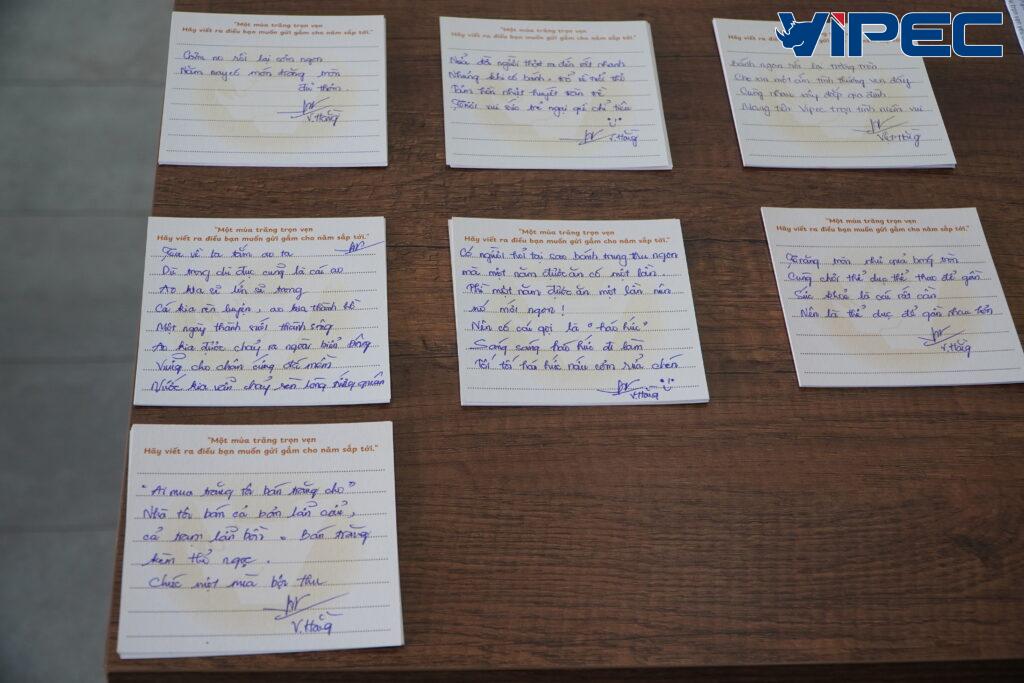 VIPEC
"Một mùa trăng trọn vẹn
Hãy viết ra điều bạn muốn gửi gắm cho năm sắp tới."
rồi lại còn ngon
Năm nay có món trăng tròn
V.Hằng
"Một mùa trăng trọn vẹn
Hãy viết ra điều bạn muốn gửi gắm cho năm sắp tới."
đời người thật ra đến rất nhanh
Nhưng khi có bánh, trở về tuổi thơ
Tâm hồn nhiệt huyết
V.Hằng
"Một mùa
Hãy viết ra điều
Bánh ngon rồi lại trăng tròn
Cho xin một cái tình thương ven đầy
Cùng nhau xây đắp gia đình
Mang tên Vipec trọn tình niềm vui
"Một mùa trăng trọn vẹn
Hãy viết ra điều bạn muốn gửi gắm cho năm sắp tới."
về ta tắm ao ta
Dù trong dù đục cũng là cái ao
Ao kia sẽ lớn
Cá kia rèn luyện, ao kia thành hồ
Một ngày thành suối thành sông
Ao kia được chảy ra ngoài biển đông
Vững cho chân cứng đá mềm
Nước kia vẫn chảy
"Một mùa trăng trọn vẹn
Hãy viết ra điều bạn muốn gửi gắm cho năm sắp tới."
Có người hỏi tại sao bánh trung thu ngon
mà một năm được ăn có một lần.
Thì một năm được ăn một lần nên
nó mới ngon!
Nên có cái gọi là "háo hức"
Sáng sáng háo hức đi làm
Tối tối háo hức nấu cơm rửa chén
V.Hằng
"Một mùa trăng trọn vẹn
Hãy viết ra điều bạn muốn gửi gắm cho năm sắp tới."
Trăng tròn như quả bóng tròn
Cùng chơi thể dục thể thao để gần
Sức khoẻ là cái rất cần
Nên là thể dục để gần nhau hơn
V.Hằng
"Một mùa trăng trọn vẹn
Hãy viết ra điều bạn muốn gửi gắm cho năm sắp tới."
"Ai mua trăng tôi bán trăng cho"
Nhà tôi bán cả bản lẫn cầu,
cả trạm lẫn bồn. Bán trăng
kèm thỏ ngọc.
Chúc một mùa bội thu
V.Hằng